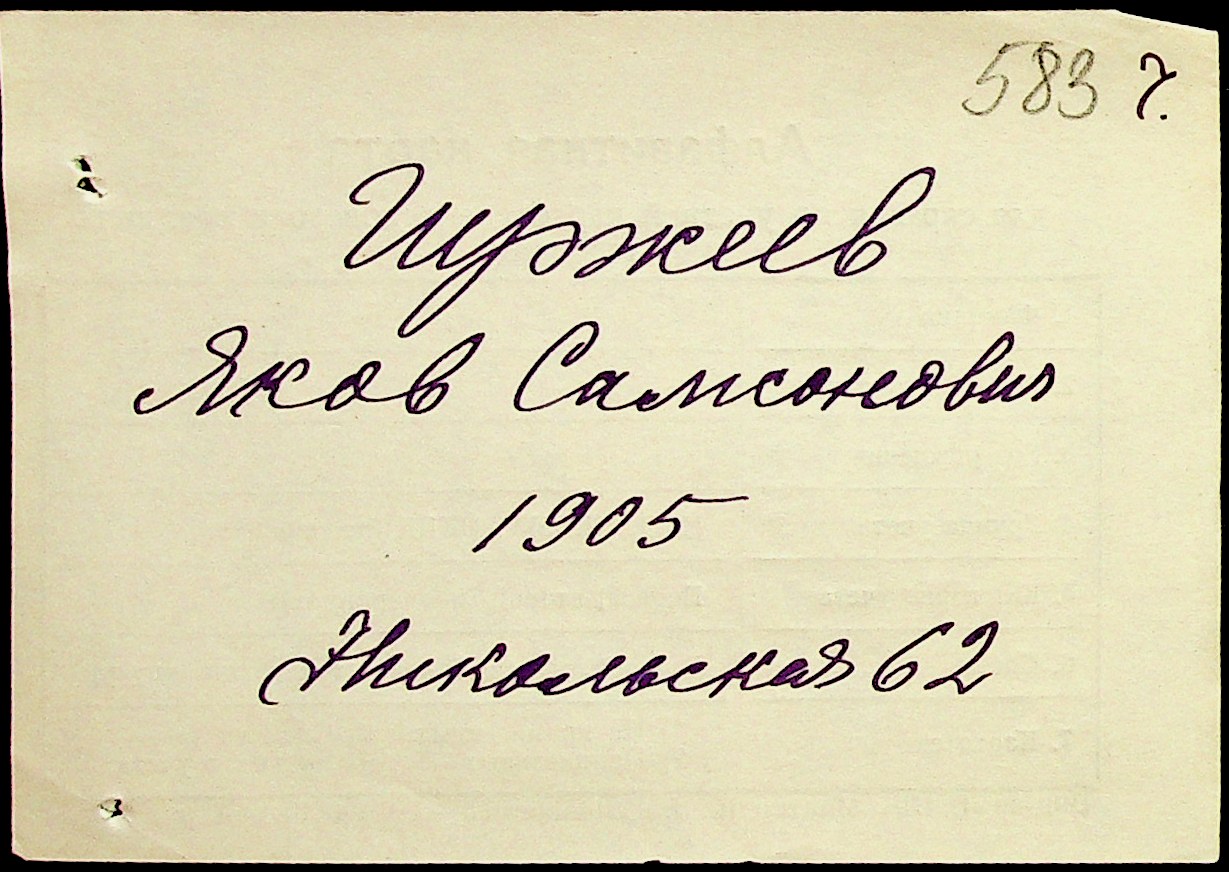 583
Гиржеев
Яков Самсонович
1905
Никольская 62